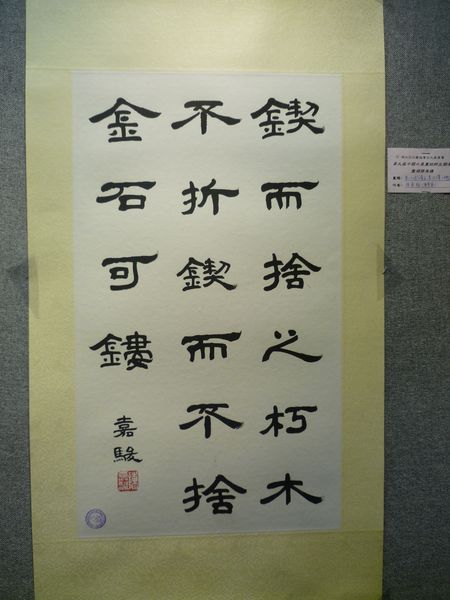 鍥而捨之朽木
不折鍥而不捨
金石可鏤
嘉駿